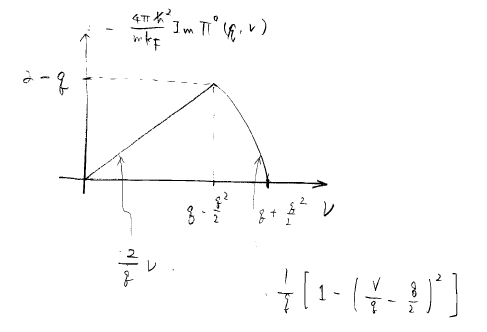 - 4πħ²/mk_F Im Π⁰(q, ν)
2 - q
q - q²/2
q + q²/2
ν
2/q ν.
1/q [ 1 - ( ν/q - q/2 )² ]